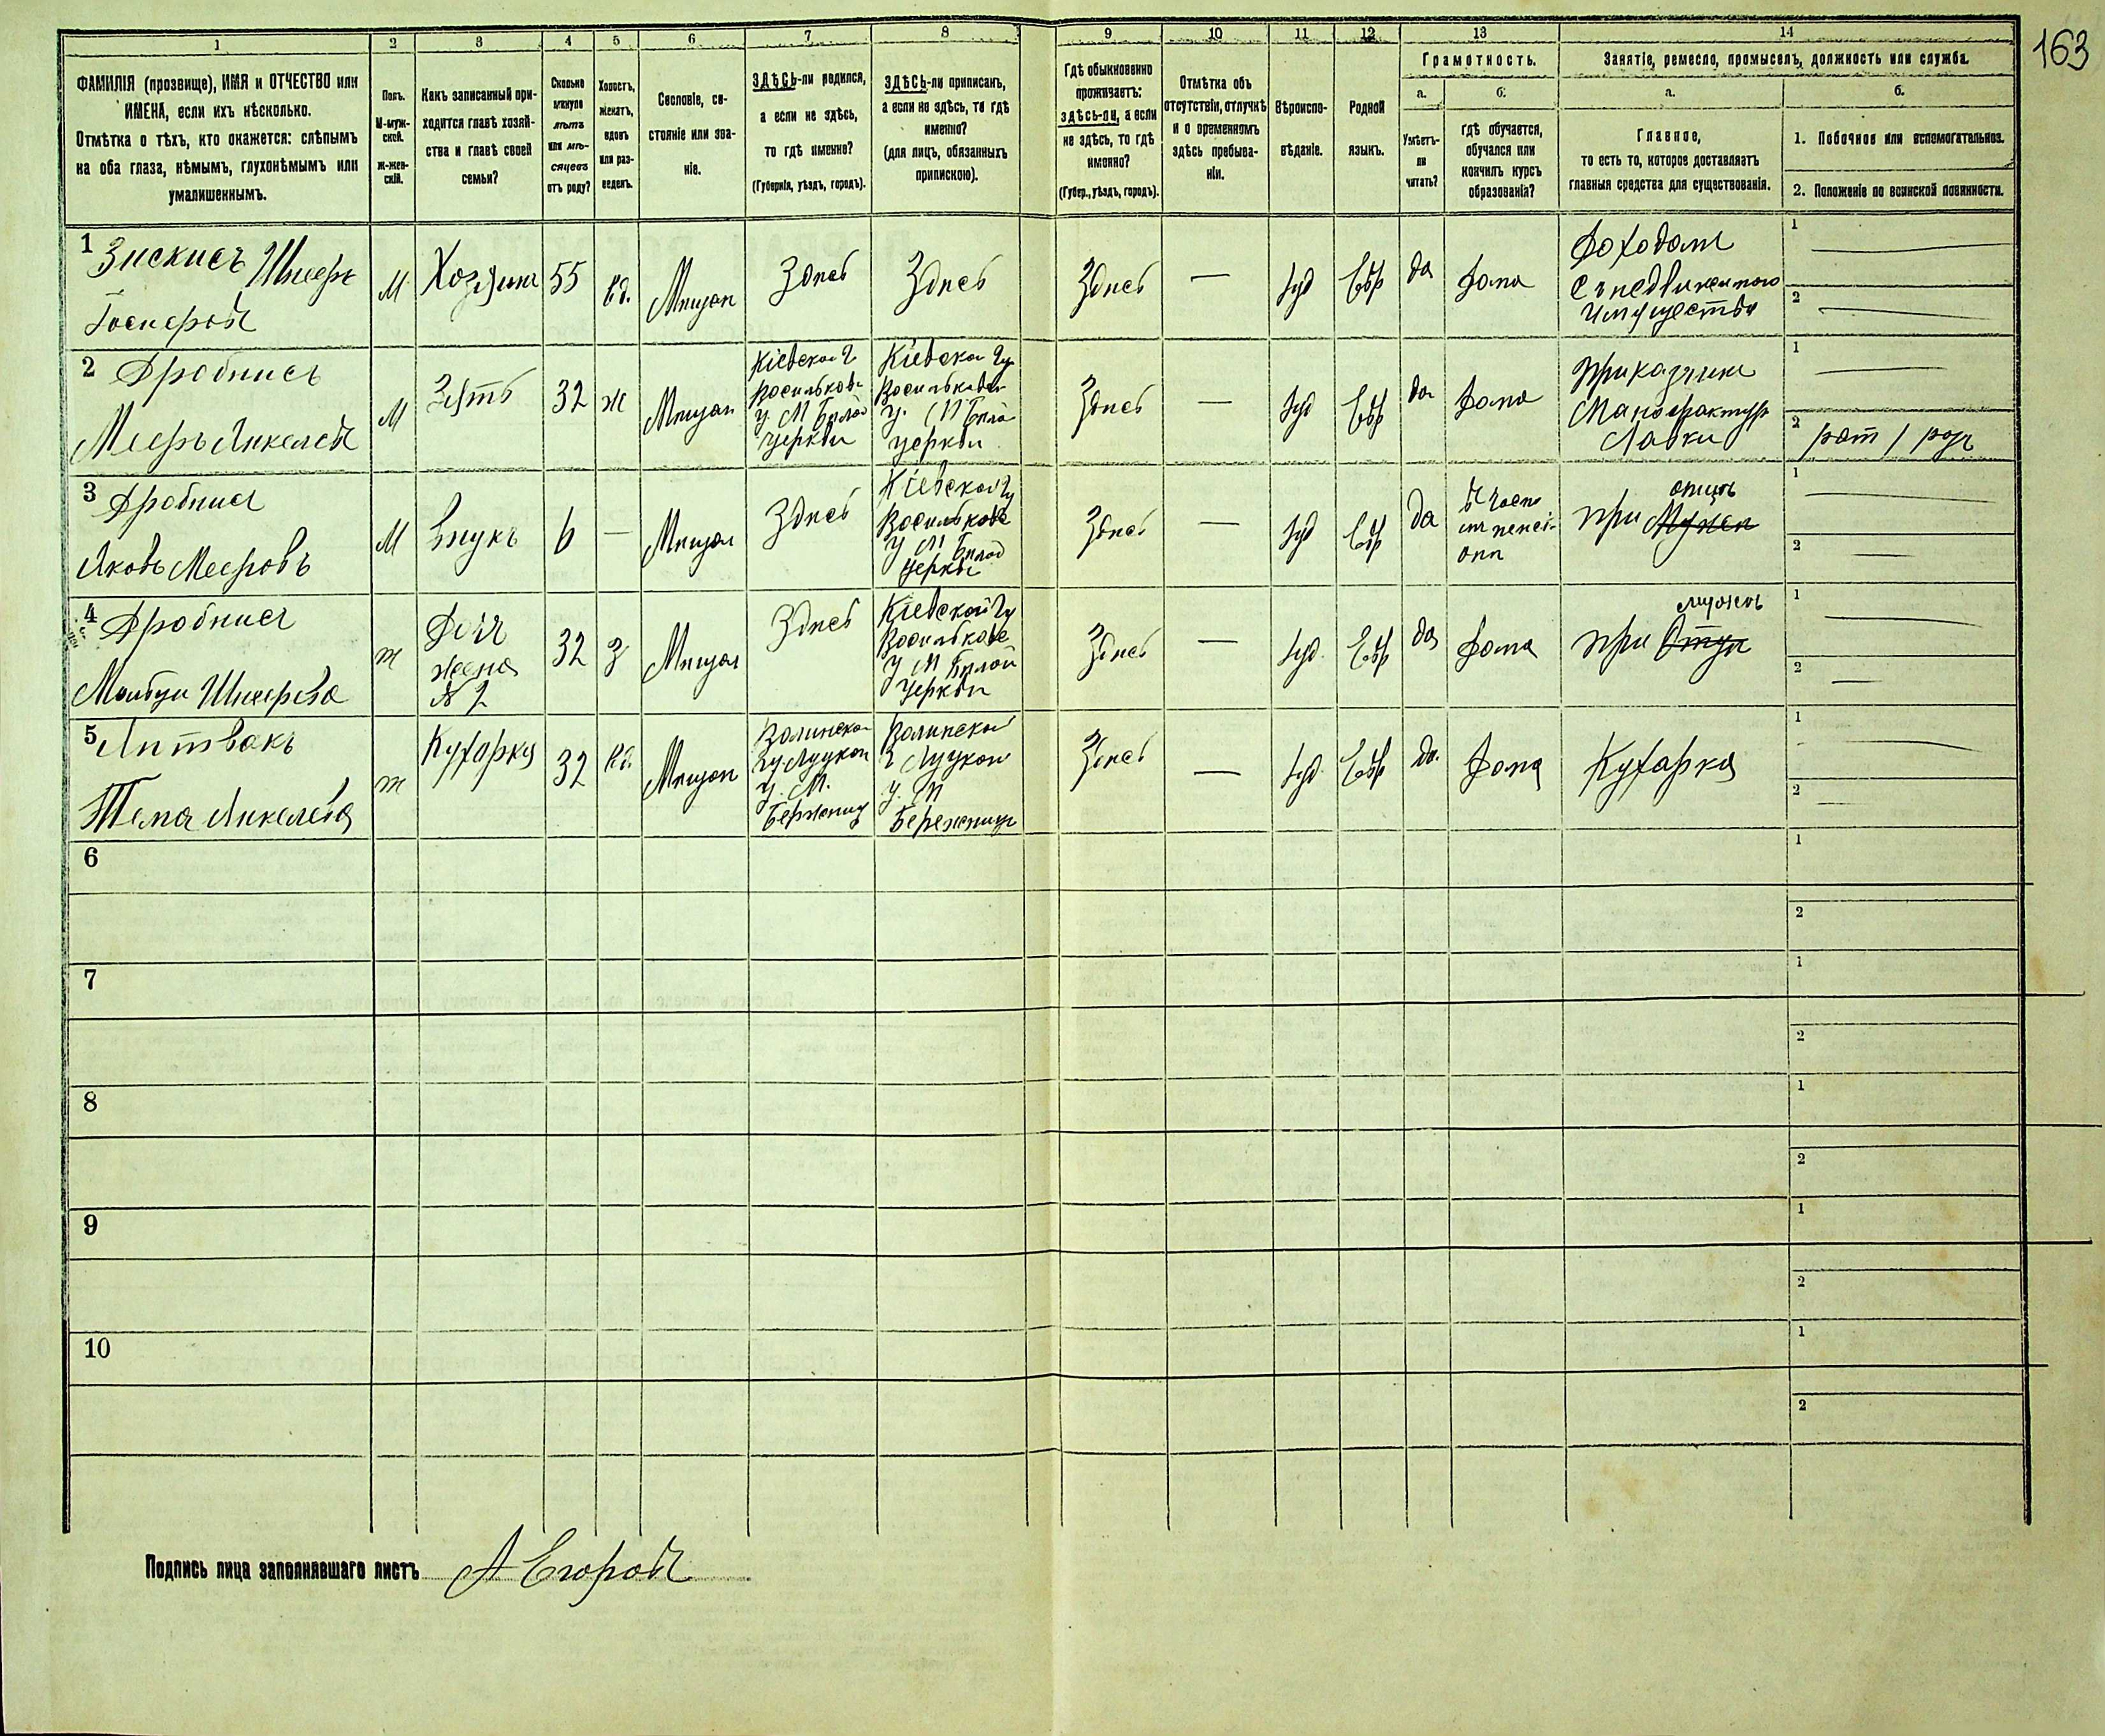 163
1
2
3
4
5
6
7
8
9
10
11
12
13
14
ФАМИЛІЯ (прозвище), ИМЯ и ОТЧЕСТВО или
ИМЕНА, если ихъ нѣсколько.
Отмѣтка о тѣхъ, кто окажется: слѣпымъ
на оба глаза, нѣмымъ, глухонѣмымъ или
умалишеннымъ.
Полъ.
М-муж-
ской.
Ж-жен-
скій.
Какъ записанный при-
ходится главѣ хозяй-
ства и главѣ своей
семьи?
Сколько
минуло
лѣтъ
или мѣ-
сяцевъ
отъ роду?
Холостъ,
женатъ,
вдовъ
или раз-
веденъ.
Сословіе, со-
стояніе или зва-
ніе.
ЗДѢСЬ-ли родился,
а если не здѣсь,
то гдѣ именно?
(Губернія, уѣздъ, городъ).
ЗДѢСЬ-ли приписанъ,
а если не здѣсь, то гдѣ
именно?
(для лицъ, обязанныхъ
припискою).
Гдѣ обыкновенно
проживаетъ:
здѣсь-ли, а если
не здѣсь, то гдѣ
именно?
(Губер., уѣздъ, городъ).
Отмѣтка объ
отсутствіи, отлучкѣ
и о временномъ
здѣсь пребыва-
ніи.
Вѣроиспо-
вѣданіе.
Родной
языкъ.
Грамотность.
а.
Умѣетъ-
ли
читать?
б.
гдѣ обучается,
обучался или
кончилъ курсъ
образованія?
Занятіе, ремесло, промыселъ, должность или служба.
а.
Главное,
то есть то, которое доставляетъ
главныя средства для существованія.
б.
1. Побочное или вспомогательное.
2. Положеніе по воинской повинности.
1 Зискисъ Шмеръ
М
Хозяинъ
55
вд.
Мѣщан
Здѣсь
Здѣсь
Здѣсь
—
Іуд
Евр
да
Дома
Доходами
съ недвижимого
имущества
1
2
2 Дробнисъ
Мееръ Янкелев
М
Зять
32
ж
Мѣщан
Кіевской г
Васильков
у М Бѣлой
Церкви
Кіевской гу
Васильков
у. М Бѣло
Церкви
Здѣсь
—
Іуд
Евр
да
Дома
Приказчик
Мануфактур
Лавки
1
2
рат 1 раз
3 Дробнис
Яковъ Мееровъ
М
Внукъ
6
—
Мѣщан
Здѣсь
Кіевской гу
Васильков
у М Бѣлой
Церкви
Здѣсь
—
Іуд
Евр
да
въ частн
пансі-
онѣ
при Мужѣ
отцѣ
1
2
4 Дробнис
Малбци Шмерова
ж
Дочь
жена
№ 2
32
З
Мѣщан
Здѣсь
Кіевской гу
Васильков
у М Бѣлой
Церкви
Здѣсь
—
Іуд.
Евр
да
Дома
при Отцѣ
мужѣ
1
2
5 Литвакъ
Тема Янкелева
ж
Кухарка
32
вд.
Мѣщан
Волинской
гу Луцкой
у. М.
Бережниц
Волинской
г Луцкой
у. М
Бережницы
Здѣсь
—
Іуд.
Евр
да.
Дома
Кухарка
1
2
6
1
2
7
1
2
8
1
2
9
1
2
10
1
2
Подпись лица заполнявшаго листъ А Егоров